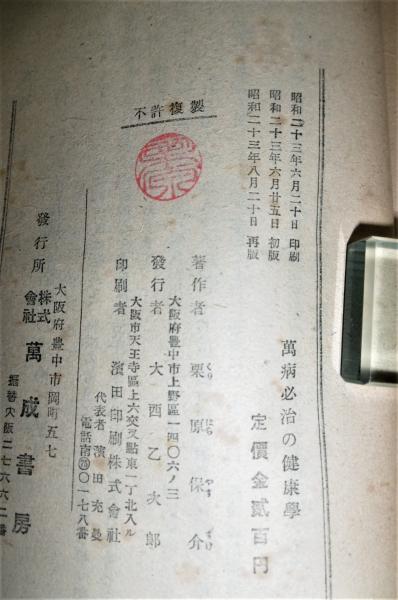 萬病必治の健康學
定價金貳百円
昭和二十三年六月二十日 印刷
昭和二十三年六月廿五日 初版
昭和二十三年八月二十日 再版
不許複製
著作者 栗原保介
大阪府豊中市上野區一四〇六ノ三
發行者 大西乙次郎
大阪市天王寺區上六交叉點東一丁北入ル
印刷者 濱田印刷株式會社
代表者 濱田充曼
電話南〇一七八番
大阪府豊中市岡町五七
發行所 株式會社 萬成書房
振替大阪二七六六二番